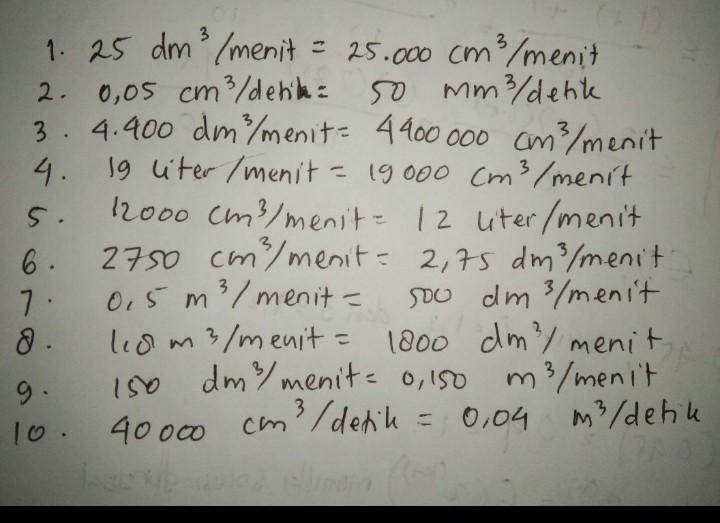 1. 25 dm³/menit = 25.000 cm³/menit
2. 0,05 cm³/detik = 50 mm³/detik
3. 4.400 dm³/menit = 4400 000 cm³/menit
4. 19 liter/menit = 19 000 cm³/menit
5. 12000 cm³/menit = 12 liter/menit
6. 2750 cm³/menit = 2,75 dm³/menit
7. 0,5 m³/menit = 500 dm³/menit
8. 1,8 m³/menit = 1800 dm³/menit
9. 150 dm³/menit = 0,150 m³/menit
10. 40 000 cm³/detik = 0,04 m³/detik